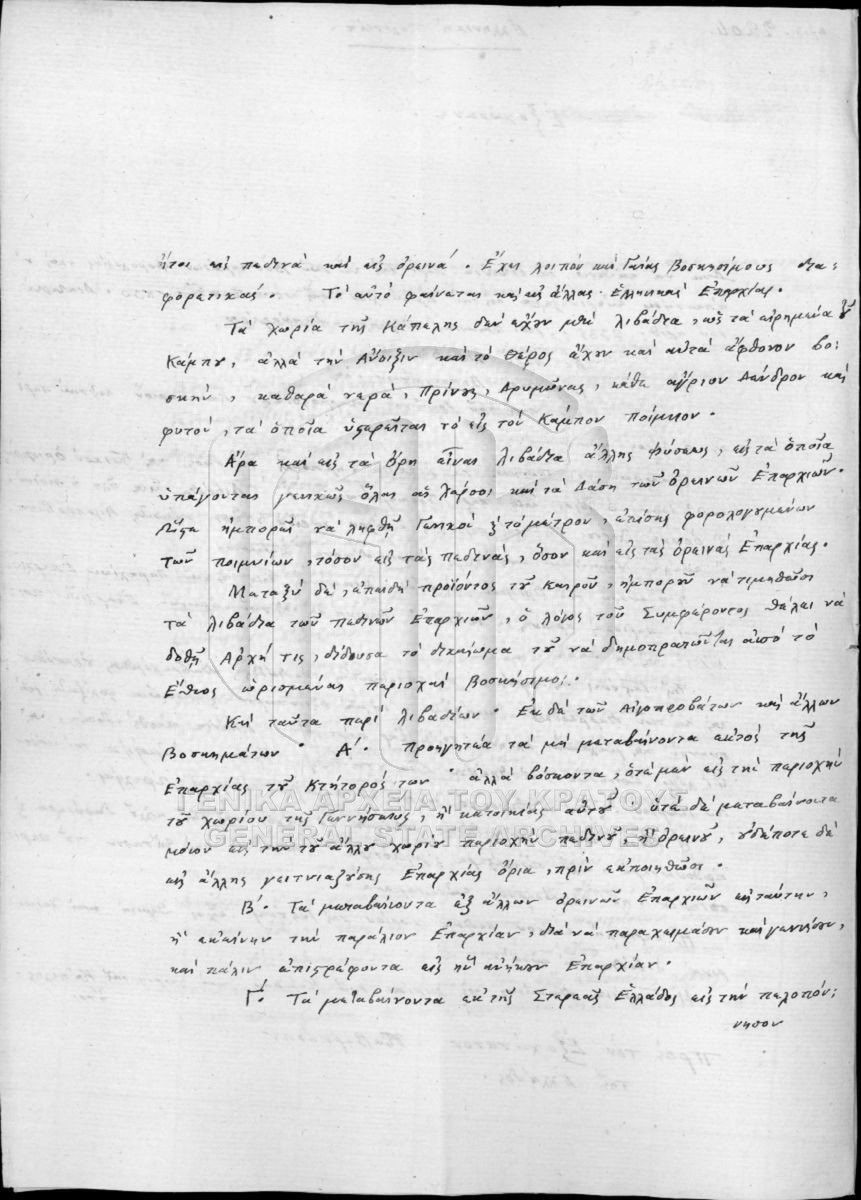 ἤτοι εἰς πεδινὰ καὶ εἰς ὀρεινά. Ἔχει λοιπὸν καὶ Γαίας βοσκησίμους δια-
φορετικάς. Τὸ αὐτὸ φαίνεται καὶ εἰς ἄλλας Ἑλληνικὰς Ἐπαρχίας.
Τὰ χωρία τῆς Κάπελης δὲν ἔχουν μὲν λιβάδια, ὡς τὰ εἰρημένα τοῦ
Κάμπου, ἀλλὰ τὴν Ἄνοιξιν καὶ τὸ Θέρος ἔχουν καὶ αὐτὰ ἄφθονον βο-
σκήν, καθαρὰ νερά, Πρίνους, Δρυμῶνας, κάθε ἄγριον Δένδρον καὶ
φυτόν, τὰ ὁποῖα ὑστερεῖται τὸ εἰς τὸν Κάμπον ποίμνιον.
Ἄρα καὶ εἰς τὰ Ὄρη εἶναι λιβάδια ἄλλης φύσεως, εἰς τὰ ὁποῖα
ὑπάγονται γενικῶς ὅλαι αἱ χέρσοι καὶ τὰ Δάση τῶν ὀρεινῶν Ἐπαρχιῶν.
ἠμπορεῖ νὰ ληφθῇ Γενικὸν τὸ μέτρον, ἐπίσης φορολογουμένων
τῶν ποιμνίων, τόσον εἰς τὰς πεδινάς, ὅσον καὶ εἰς τὰς ὀρεινὰς Ἐπαρχίας.
Μεταξὺ δέ, ἐπειδὴ προϊόντος τοῦ καιροῦ, ἠμποροῦν νὰ τιμηθῶσι
τὰ λιβάδια τῶν πεδινῶν Ἐπαρχιῶν, ὁ λόγος τοῦ Συμφέροντος θέλει νὰ
δοθῇ Ἀρχή τις, δίδουσα τὸ δικαίωμα τοῦ νὰ δημοπρατῶνται ἀπὸ τὸ
Ἔθνος ὡρισμέναι περιοχαὶ βοσκήσιμοι.
Καὶ ταῦτα περὶ λιβαδίων. Ἐκ δὲ τῶν Αἰγοπροβάτων καὶ ἄλλων
βοσκημάτων. Α΄. Προηγητέα τὰ μὴ μεταβαίνοντα ἐκτὸς τῆς
Ἐπαρχίας τοῦ Κτήτορός των. ἀλλὰ βόσκοντα, ὁτὲ μὲν εἰς τὴν περιοχὴν
τοῦ χωρίου τῆς Γεννήσεως, ἢ κατοικίας αὐτοῦ. ὁτὲ δὲ μεταβαίνοντα
μόνον εἰς τὴν τοῦ ἄλλου χωρίου περιοχὴν πεδινοῦ, ἢ ὀρεινοῦ, οὐδέποτε δὲ
εἰς ἄλλης γειτνιαζούσης Ἐπαρχίας ὅρια, πρὶν ἐκποιηθῶσι.
Β΄. Τὰ μεταβαίνοντα ἐξ ἄλλων ὀρεινῶν Ἐπαρχιῶν εἰς ταύτην,
ἢ ἐκείνην τὴν παράλιον Ἐπαρχίαν, διὰ νὰ παραχειμάσουν καὶ γεννήσουν,
καὶ πάλιν ἐπιστρέφοντα εἰς ἣν ἀνήκουν Ἐπαρχίαν.
Γ΄. Τὰ μεταβαίνοντα ἐκ τῆς Στερεᾶς Ἑλλάδος εἰς τὴν πελοπόν-
νησον
ΓΕΝΙΚΑ ΑΡΧΕΙΑ ΤΟΥ ΚΡΑΤΟΥΣ
GENERAL STATE ARCHIVES